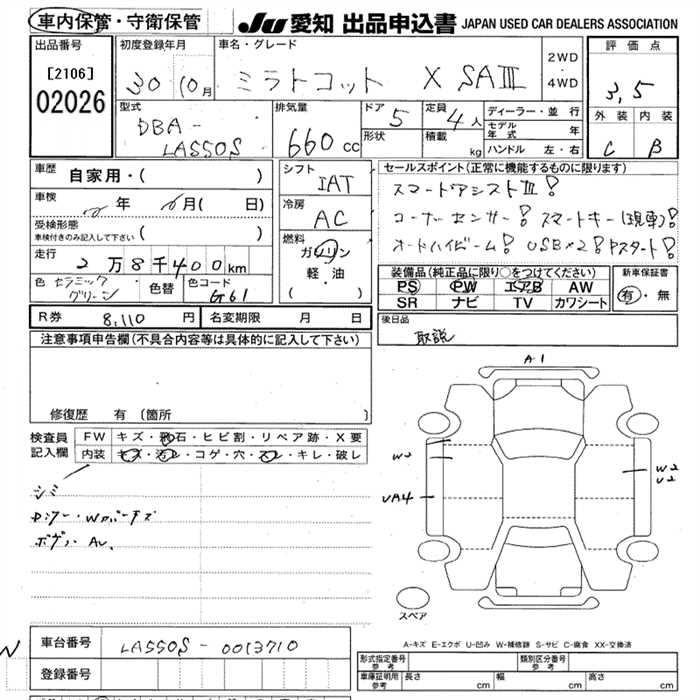 車内保管・守衛保管
JU 愛知 出品申込書 JAPAN USED CAR DEALERS ASSOCIATION
出品番号 初度登録年月 車名・グレード 2WD・4WD 評価点
[2106]
02026
30 10月 ミラトコット X SAⅢ 3,5
型式 排気量 ドア 5 定員 4人 ディーラー・並行 外装 内装
DBA-LA550S 660cc 形状 積載 kg モデル年式 年 C B
ハンドル 左・右
車歴 自家用・( ) シフト IAT セールスポイント(正常に機能するものに限ります)
車検 年 月( 日) 冷房 AC スマートアシストⅢ!
受検形態 車検付きのみ記入して下さい ( ) 燃料 コーナーセンサー! スマートキー(現車)!
走行 2万8千400km ガソリン 軽油 ( ・ ) オートハイビーム! USB×2! Pスタート!
色 セラミックグリーン 色替 色コード G61
装備品(純正品に限り○をつけてください) 新車保証書
PS PW エアB AW 有・無
SR ナビ TV カワシート
R券 8,110円 名変期限 月 日
後日品
取説
注意事項申告欄(不具合内容等は具体的に記入して下さい)
修復歴 有 〔箇所 〕
検査員記入欄 FW キズ・飛石・ヒビ割・リペア跡・X要
内装 キズ・汚レ・コゲ・穴・スレ・キレ・破レ
シミ
A1
W2
U2
UA4
スペア
A-キズ E-エクボ U-凹み W-補修跡 S-サビ C-腐食 XX-交換済
車台番号 LA550S-0013710
登録番号
形式指定番号 参考 類別区分番号 参考
車庫証明用 参考 長さ cm 幅 cm 高さ cm